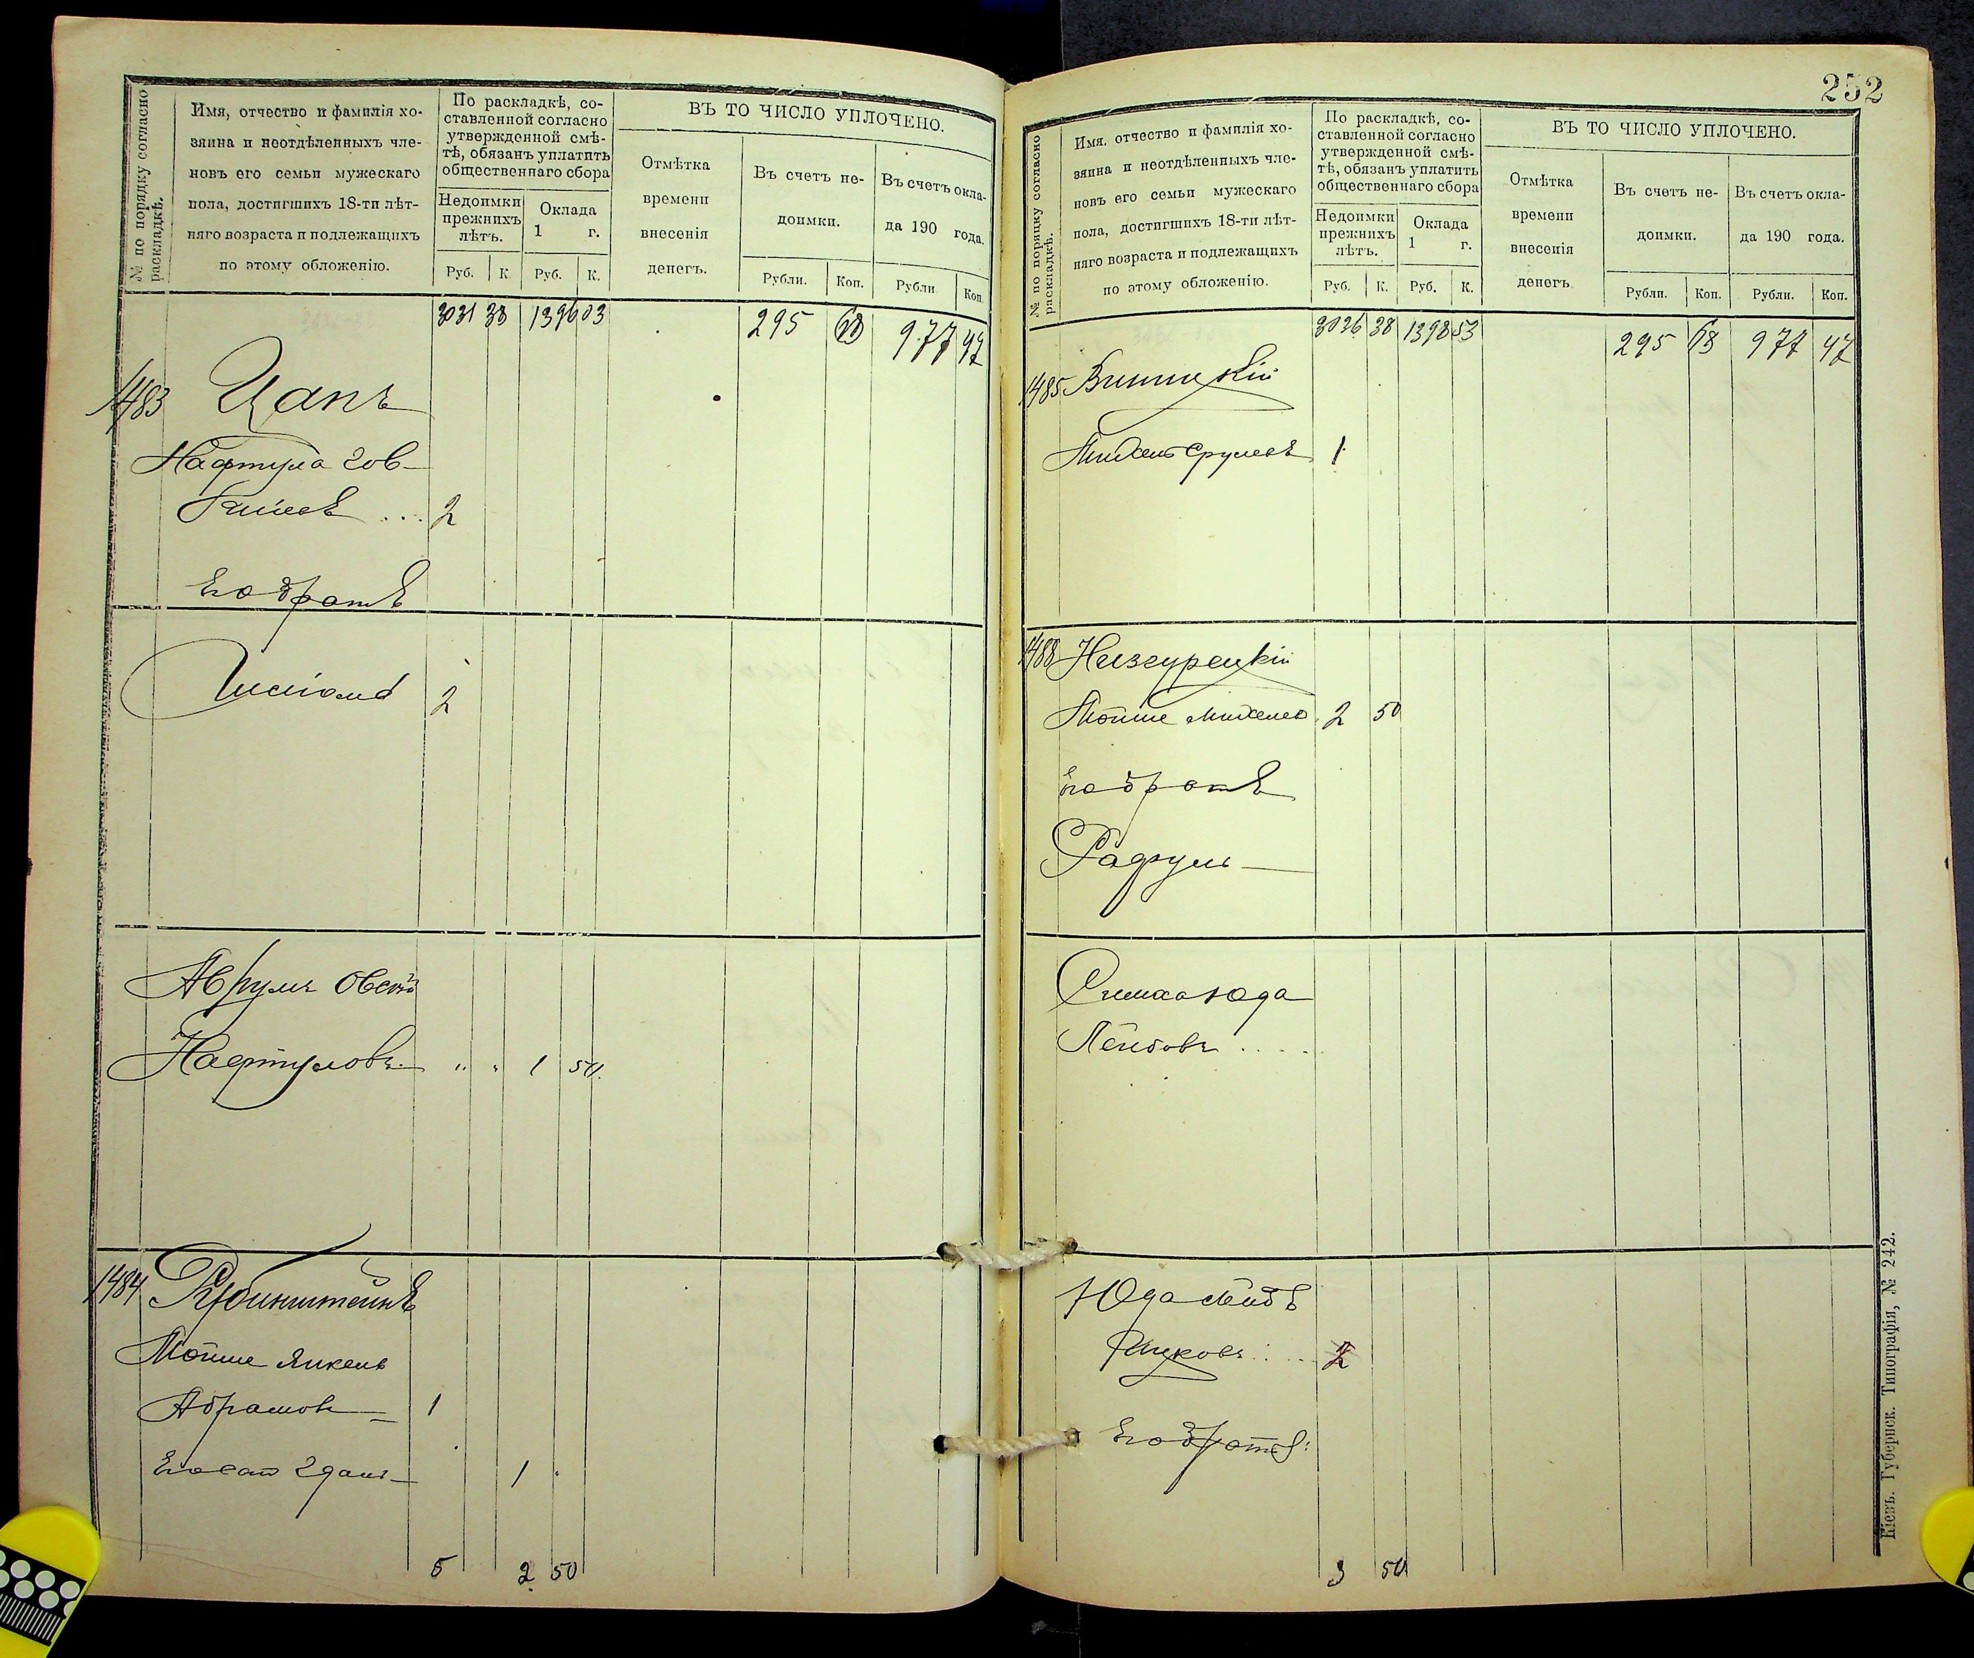 № по порядку согласно
раскладкѣ.
Имя, отчество и фамилія хо-
зяина и неотдѣленныхъ чле-
новъ его семьи мужескаго
пола, достигшихъ 18-ти лѣт-
няго возраста и подлежащихъ
по этому обложенію.
По раскладкѣ, со-
ставленной согласно
утвержденной смѣ-
тѣ, обязанъ уплатить
общественнаго сбора
Недоимки
прежнихъ
лѣтъ.
Оклада
1 г.
Руб. К. Руб. К.
ВЪ ТО ЧИСЛО УПЛОЧЕНО.
Отмѣтка
времени
внесенія
денегъ.
Въ счетъ не-
доимки.
Въ счетъ окла-
да 190 года.
Рубли. Коп. Рубли Коп.
3031 38 1396 03 295 68 977 47
1483 Цапъ
Нафтула Гов-
шіевъ ... 2
Его братъ
2
Аврумъ Овсей
Нафтуловъ " " 1 50
1484 Рубинштейнъ
Мойше Янкель
Абрамовъ 1
Его сынъ Гдаль 1
5 2 50
252
№ по порядку согласно
раскладкѣ.
Имя, отчество и фамилія хо-
зяина и неотдѣленныхъ чле-
новъ его семьи мужескаго
пола, достигшихъ 18-ти лѣт-
няго возраста и подлежащихъ
по этому обложенію.
По раскладкѣ, со-
ставленной согласно
утвержденной смѣ-
тѣ, обязанъ уплатить
общественнаго сбора
Недоимки
прежнихъ
лѣтъ.
Оклада
1 г.
Руб. К. Руб. К.
ВЪ ТО ЧИСЛО УПЛОЧЕНО.
Отмѣтка
времени
внесенія
денегъ.
Въ счетъ не-
доимки.
Въ счетъ окла-
да 190 года.
Рубли. Коп. Рубли. Коп.
3036 38 1398 53 295 68 977 47
1485 Винницкій
Михель Срулевъ 1
1488 Низгурецкій
Мойше Михелев 2 50
Его братъ
Рафуль
Симха Юда
Лейбовъ .....
Юда Лейбъ
Ицковъ .... 2
Его братъ:
3 50
Кіевъ. Губернск. Типографія, № 242.